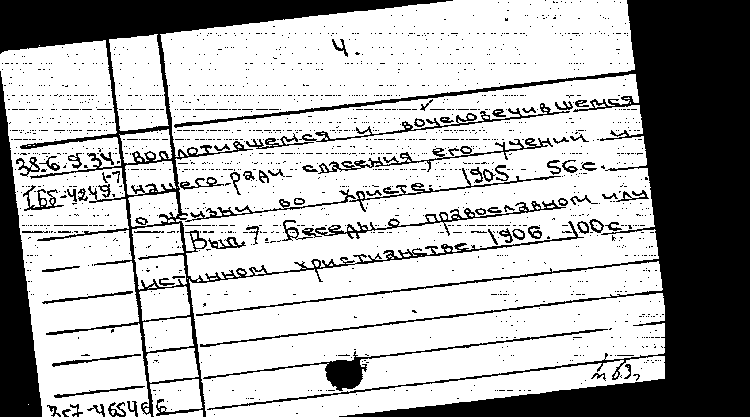 4.
38.6.9.34. воплотившемся и вочеловечившемся
нашего ради спасения, его учении и
о жизни во Христе. 1905. 56 с.
Вып. 7. Беседы о православном или
истинном христианстве. 1906. 100 с.